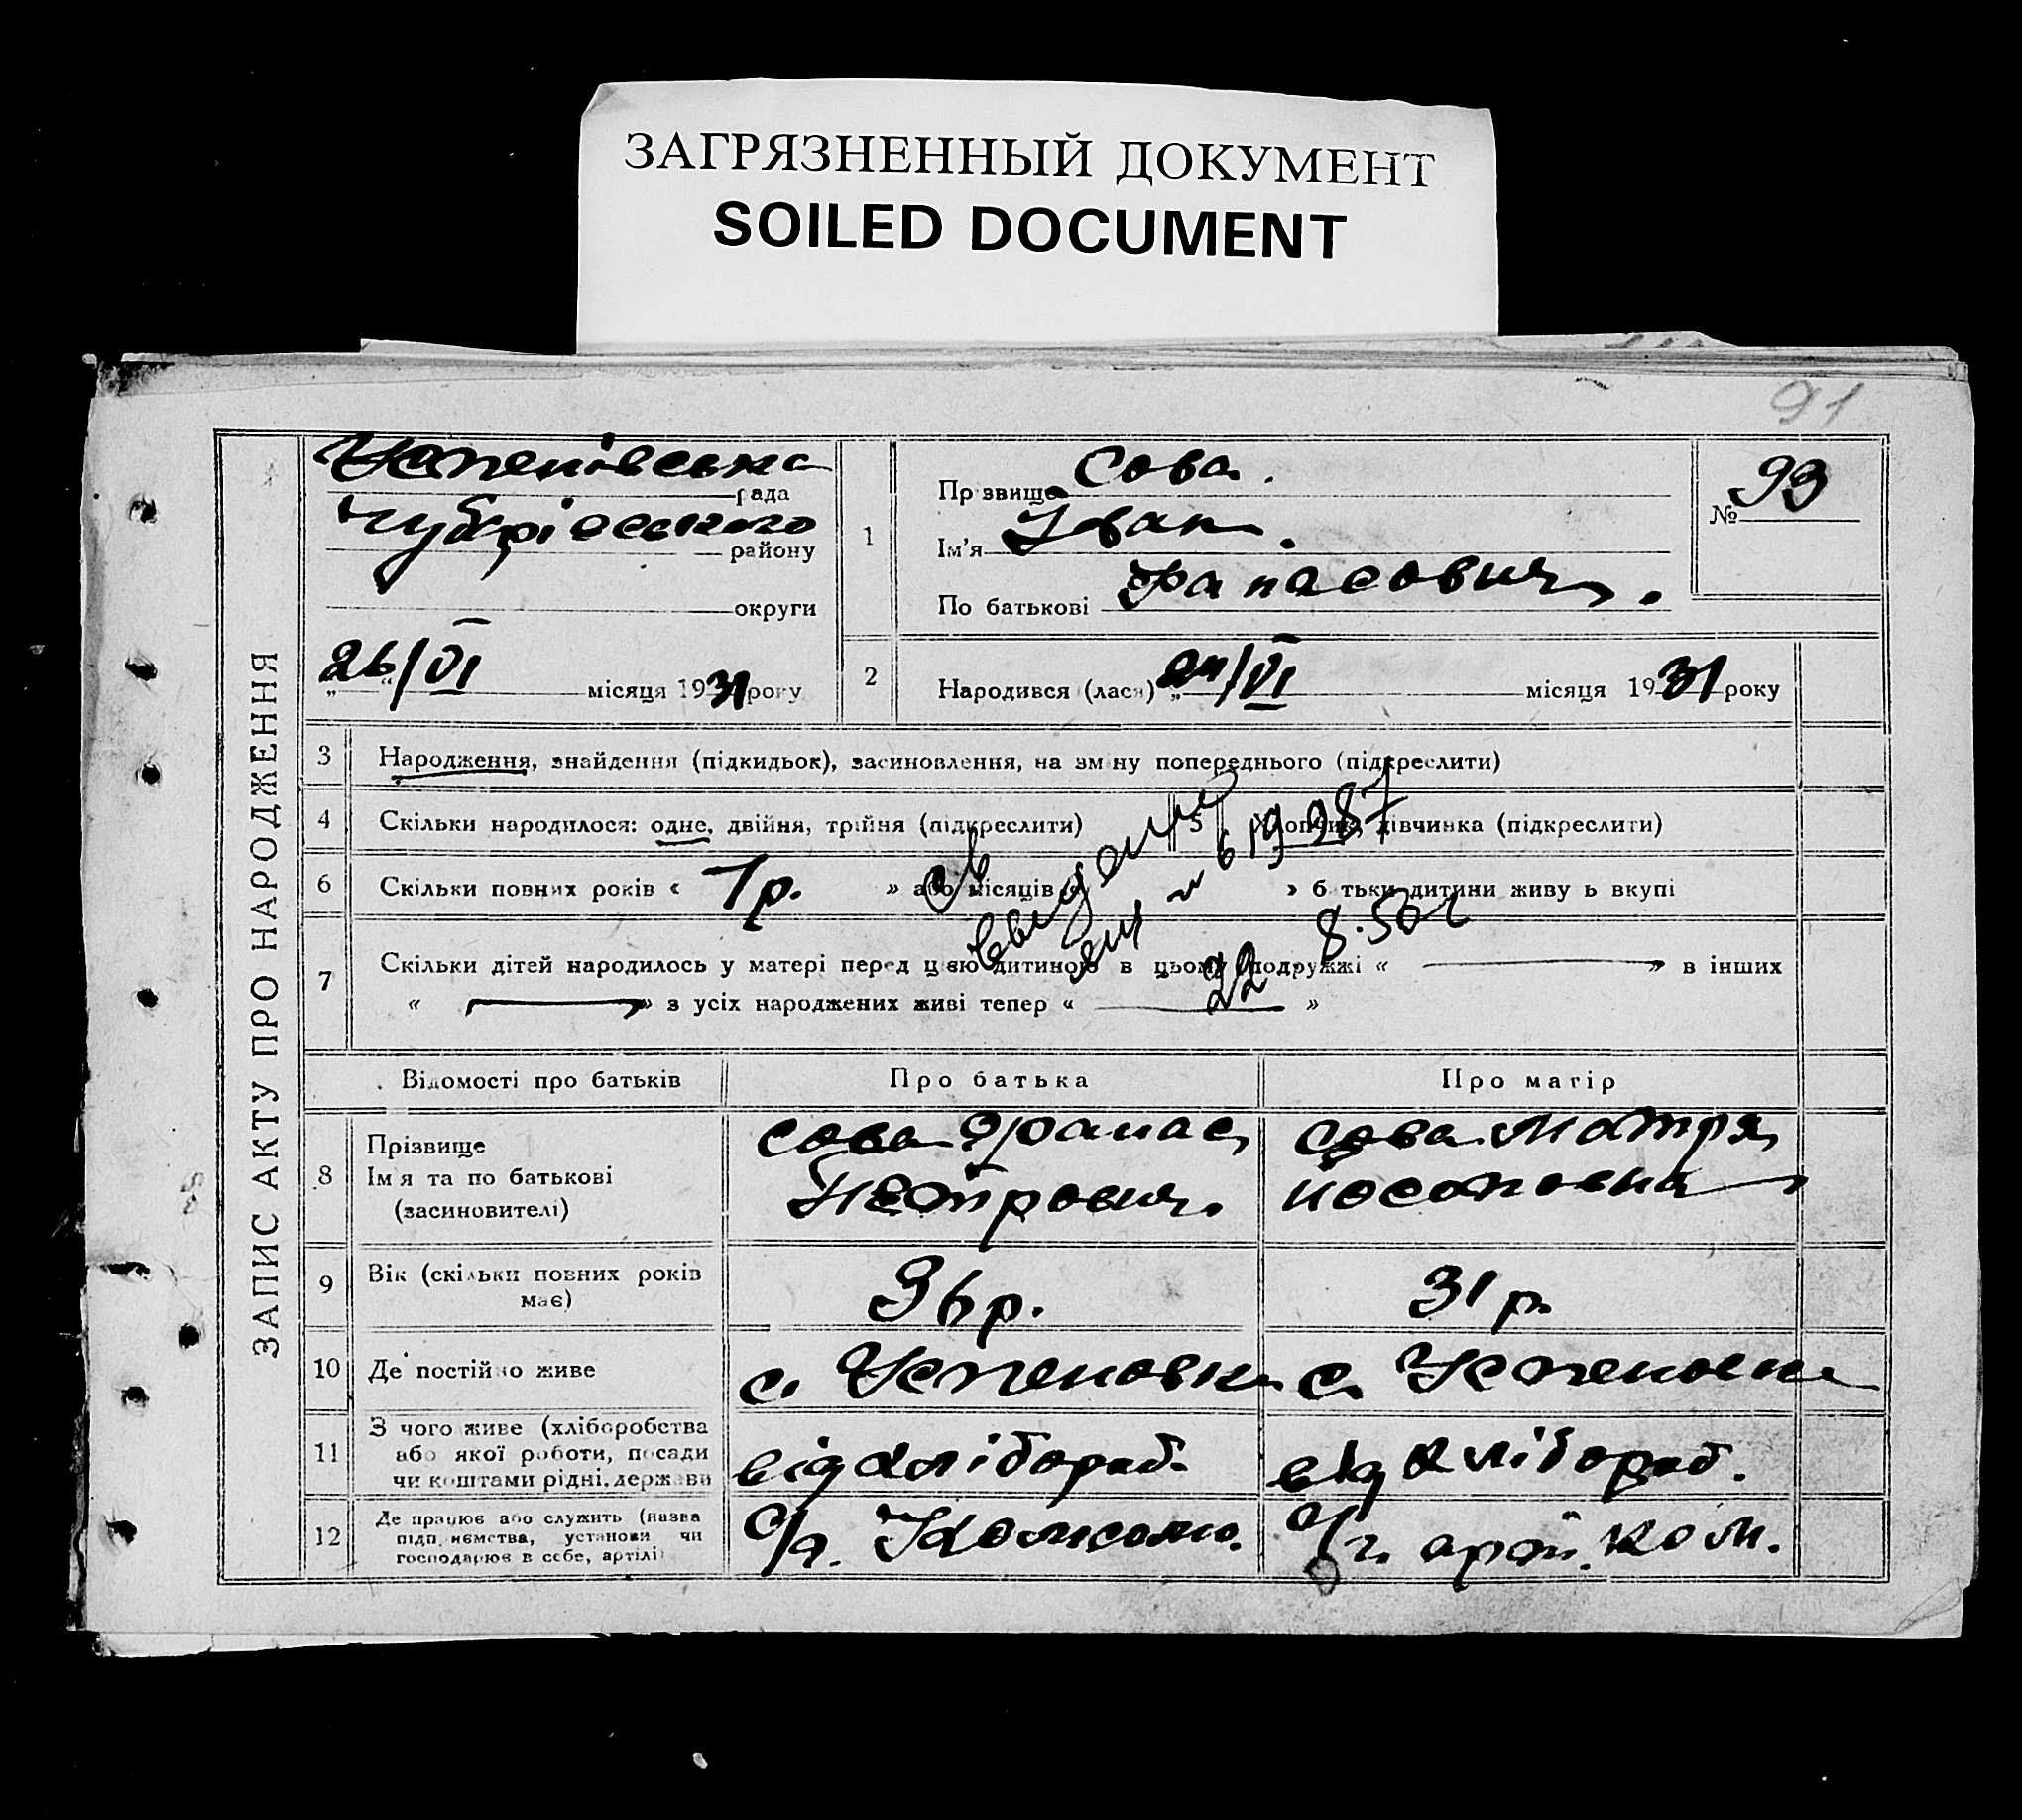 ЗАГРЯЗНЕННЫЙ ДОКУМЕНТ
SOILED DOCUMENT
91
ЗАПИС АКТУ ПРО НАРОДЖЕННЯ
Успенівська рада
району
округи
26/VI місяця 1931 року
1
Прізвище Сова.
Ім'я Іван.
По батькові Фанасович.
№ 93
2
Народився (лася) „24/VI місяця 1931 року
3 Народження, знайдення (підкидьок), засиновлення, на зміну попереднього (підкреслити)
4 Скільки народилося: одне, двійня, трійня (підкреслити)
5 Хлопчик, дівчинка (підкреслити)
6 Скільки повних років « 7р. » або місяців « » батьки дитини живуть вкупі
7 Скільки дітей народилось у матері перед цією дитиною в цьому подружжі « — » в інших
« — » з усіх народжених живі тепер « — »
22 8.50 г
Відомості про батьків Про батька Про матір
8 Прізвище
Ім'я та по батькові
(засиновителі)
Сова Фанас
Петрович.
Сова Мотря
Йосиповна
9 Вік (скільки повних років
має)
36 р. 31 р.
10 Де постійно живе с. Успеновка с. Успеновка
11 З чого живе (хліборобства
або якої роботи, посади
чи коштами рідні, держави
від хлібороб. від хлібороб.
12 Де працює або служить (назва
підприємства, установи чи
господарює в себе, артілі)
арт. ком.